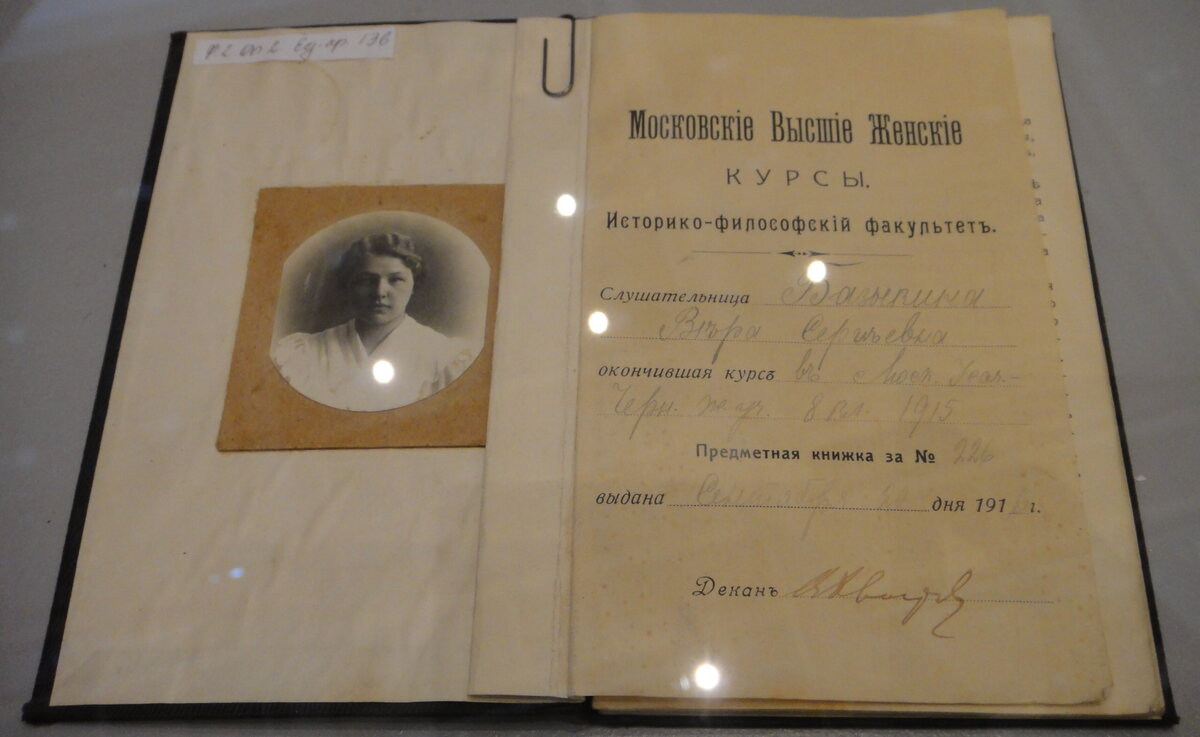 Ф2 Оп2 Ед-хр. 136
Московскіе Высшіе Женскіе
КУРСЫ.
Историко-философскій факультетъ.
Слушательница
Вѣра Сергѣевна
окончившая курсъ въ Моск.
Черн. ж. уч. 8 кл. 1915
Предметная книжка за № 226
выдана Сентября дня 191 г.
Деканъ